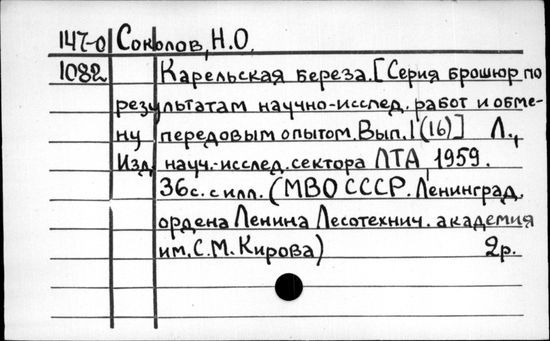 147-0 Соколов, Н.О.
1082 Карельская береза. [Серия брошюр по
результатам научно-исслед. работ и обме-
ну передовым опытом. Вып. 1 (16)] Л.,
Изд. науч.-исслед. сектора ЛТА, 1959.
36с. с илл. (МВО СССР. Ленинград.
ордена Ленина Лесотехнич. академия
им. С.М. Кирова) 2р.